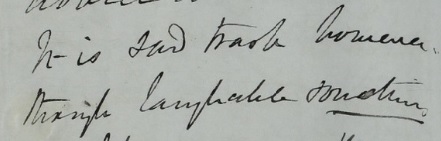 It is sad trash however,
though laughable sometimes